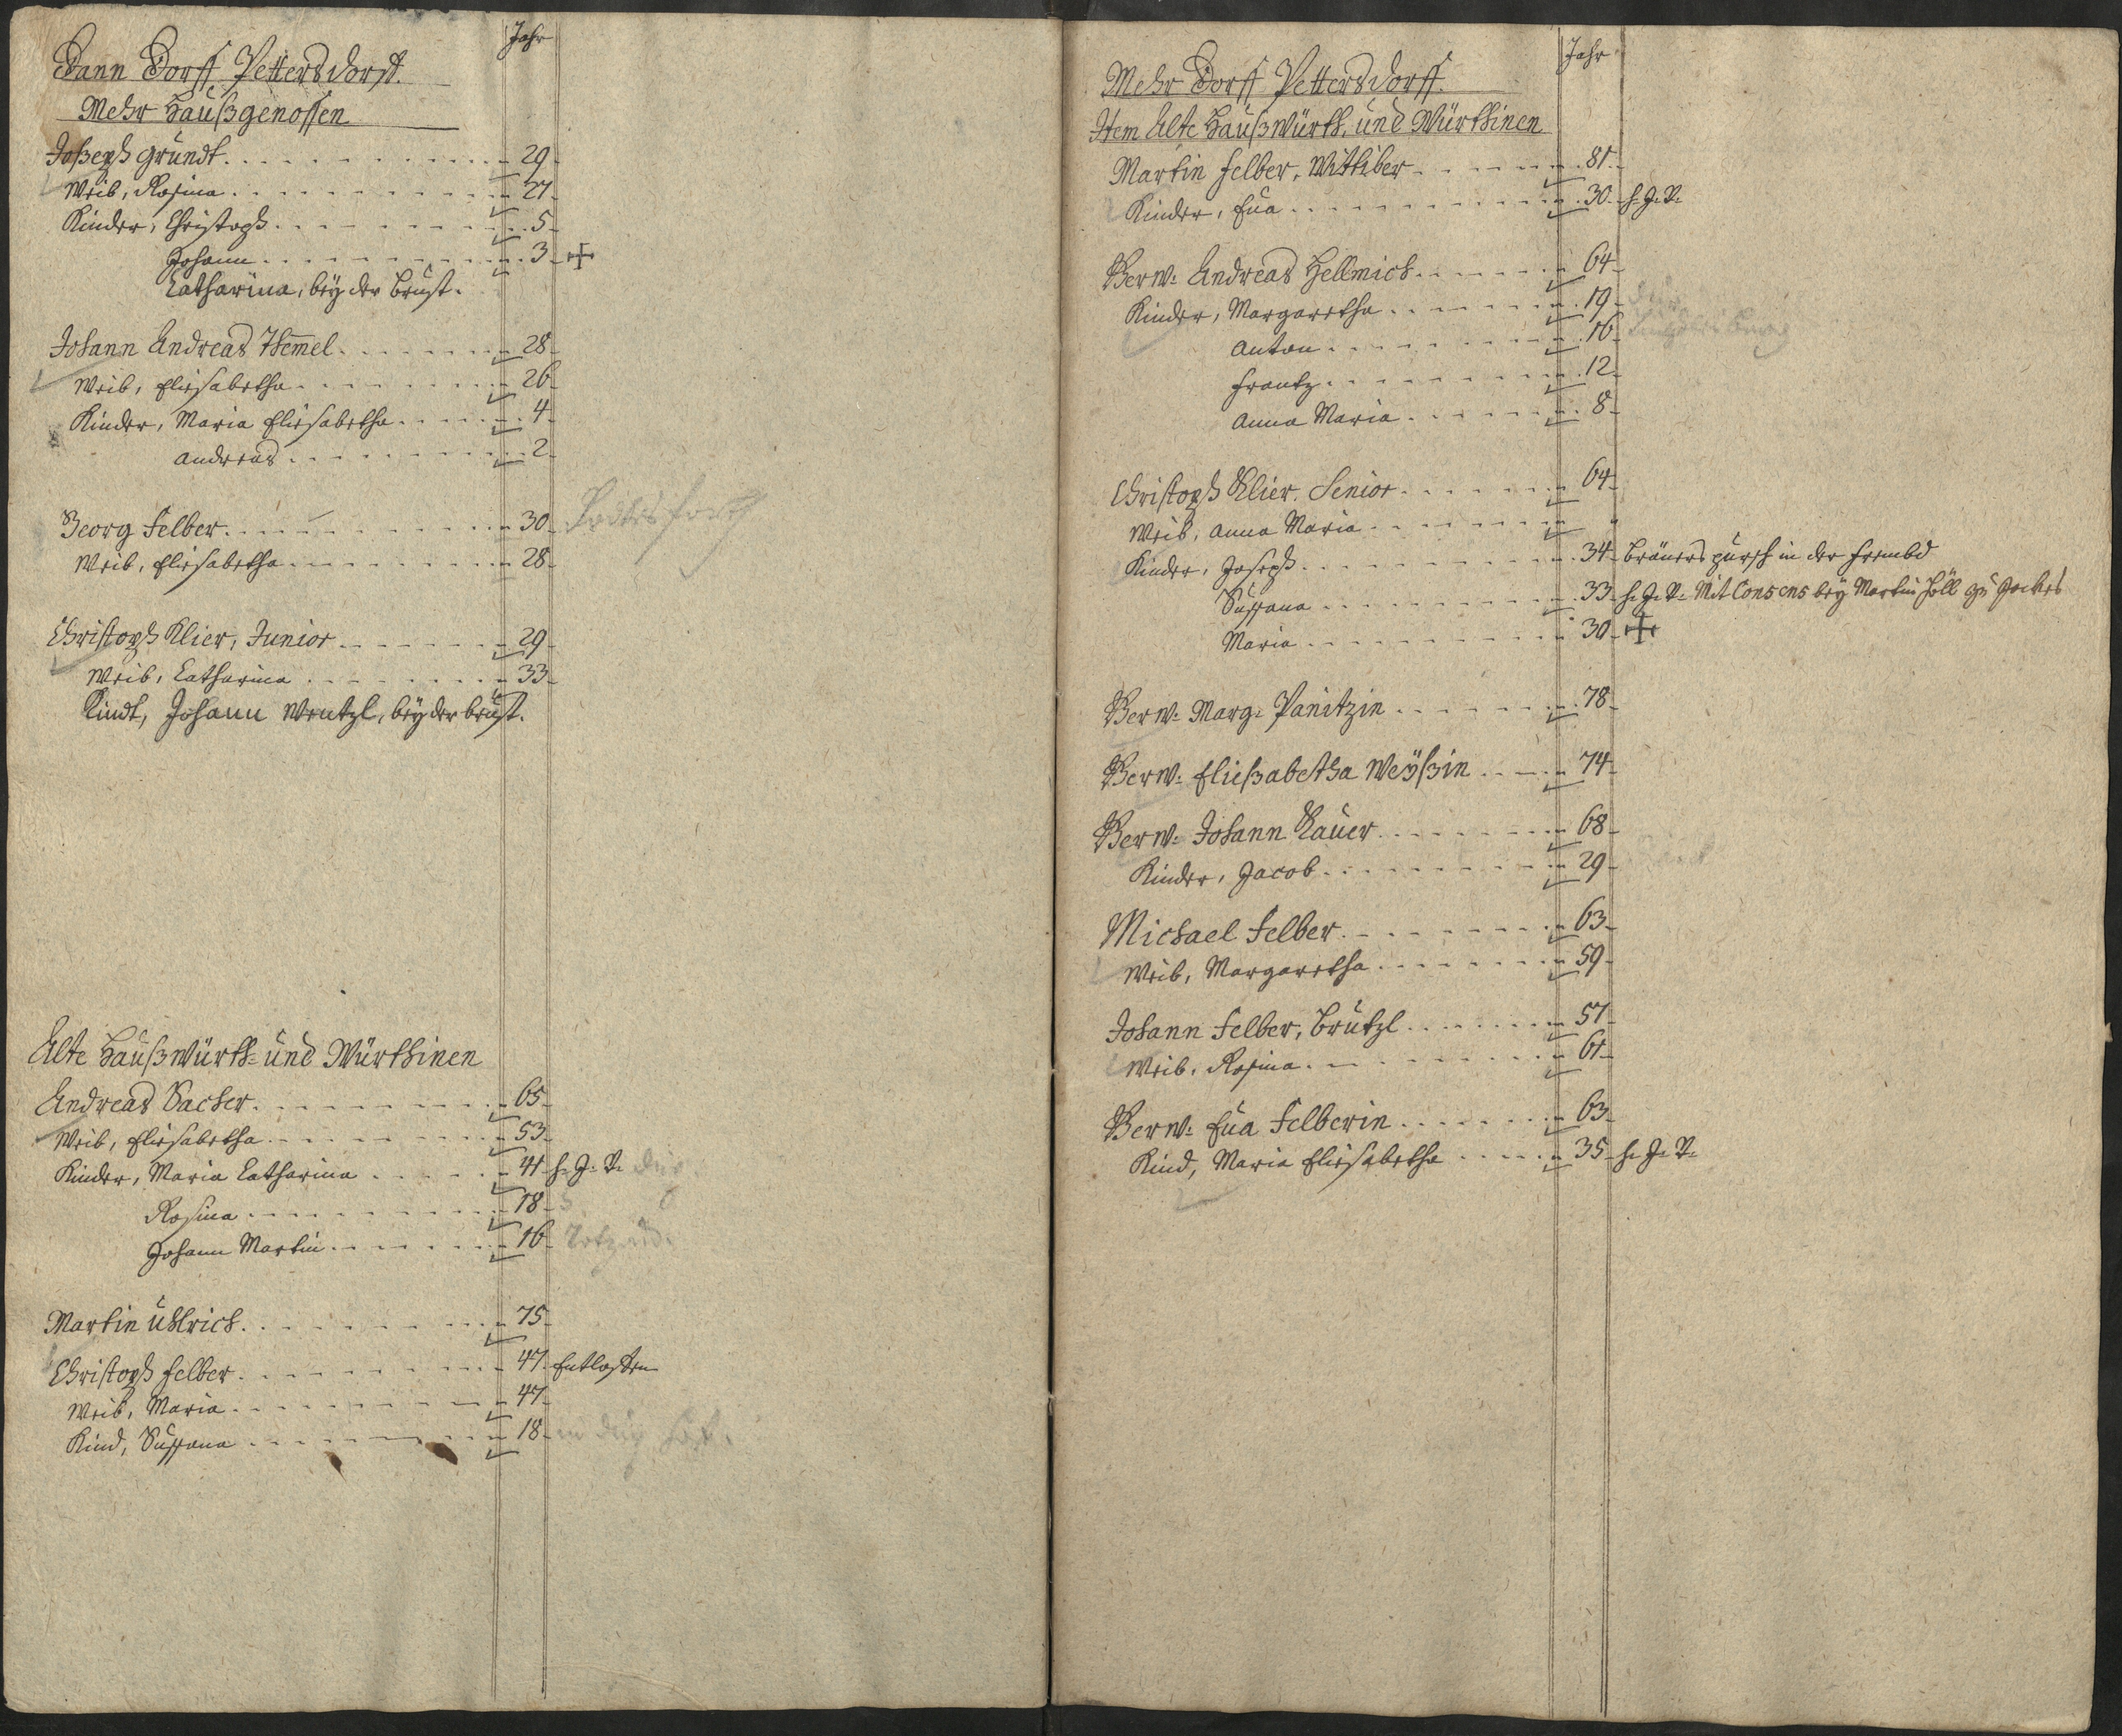 Jahr
Dann Dorff Pettersdorff.
Mehr Haußgenossen
Joßeph Grundt. 29
Weib, Rosina 27
Kinder, Christoph 5
Johann 3
Catharina, bey der Brust.
Johann Andreas Themel 28
Weib, Eliesabetha 26
Kinder, Maria Eliesabetha 4
Andreas 2
Georg Felber 30
Weib, Eliesabetha 28
Christoph Klier, Junior 29
Weib, Catharina 33
Kindt, Johann Wentzl, bey der brust.
Alte Haußwürth- und Würthinen
Andreas Sacher 65
Weib, Eliesabetha 53
Kinder, Maria Catharina 41 h. J. V.
Rosina 18
Johann Martin 16
Martin Uhlrich 75
Christoph Felber 47 Entlassen
Weib, Maria 47
Kind, Sussana 18
Jahr
Mehr Dorff Pettersdorff.
Item Alte Haußwürth, und Würthinen
Martin Felber, Wittiber 81
Kinder, Eua 30 h. J. V.
Verw: Andreas Hellmich 64
Kinder, Margaretha 19
Anton 16
Frantz 12
Anna Maria 8
Christoph Klier. Senior 64
Weib, Anna Maria "
Kinder, Joseph 34 Bräuers pursch in der frembd
Sussana 33 h. J. V. Mit Consens bey Martin
Maria 30
Verw: Marg: Panitzin 78
Verw: Eließabetha Weÿßin 74
Verw: Johann Bauer 68
Kinder, Jacob 29
Michael Felber 63
Weib, Margaretha 59
Johann Felber, Brutzl 57
Weib, Rosina 61
Verw: Eua Felberin 63
Kind, Maria Eliesabetha 35 h. J. V.